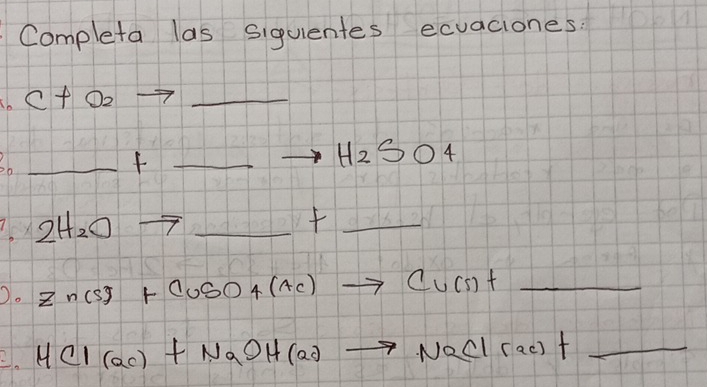 Completa las siguientes ecuaciones:
C + O2 → ____
____ + ____ → H2SO4
2H2O → ____ + ____
D. Zn(s) + CuSO4(Ac) → Cu(s) + ____
E. HCl(ac) + NaOH(ac) → NaCl(ac) + ____